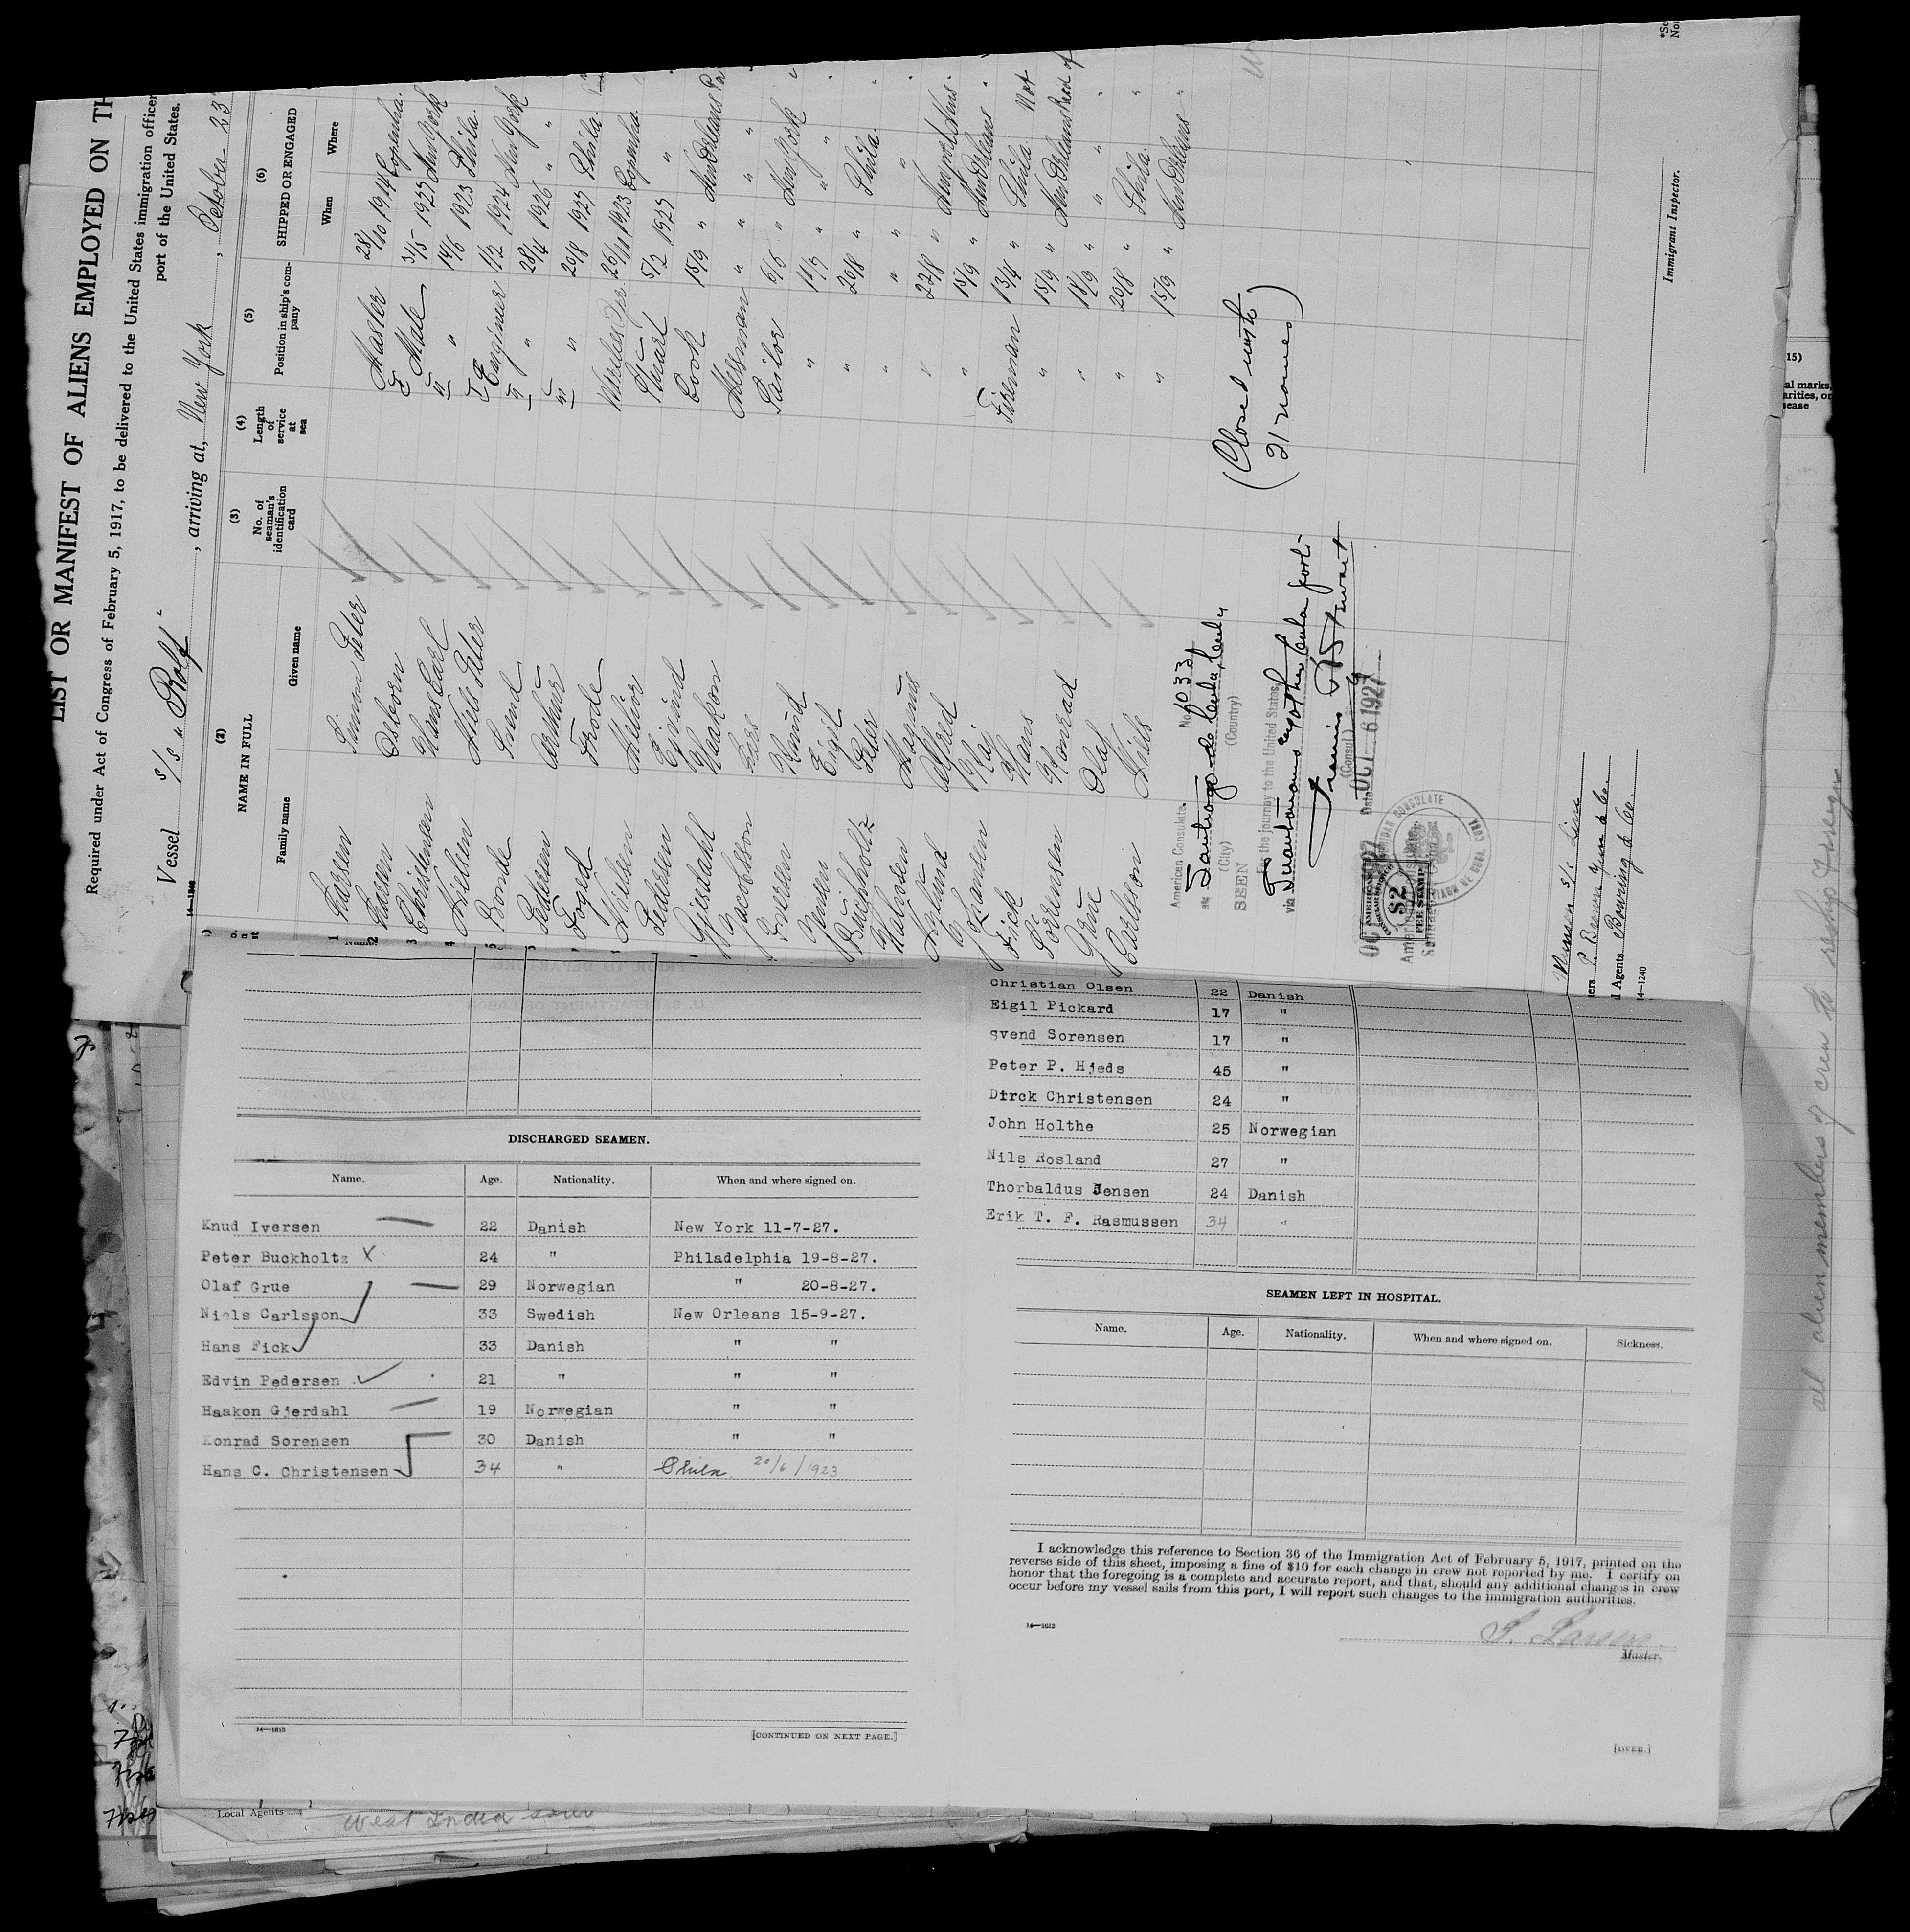 LIST OR MANIFEST OF ALIENS EMPLOYED ON TH
Required under Act of Congress of February 5, 1917, to be delivered to the United States immigration officer
port of the United States.
Vessel S/S "Rolf" , arriving at, New York , October 23
14—1240
(2) (3) (4) (5) (6)
NAME IN FULL No. of seaman's identification card Length of service at sea Position in ship's company SHIPPED OR ENGAGED
Family name Given name When Where
1 Larsen Simon Peter Master 28/10 1914 Copenha.
2 Larsen Osborn I Mate 31/5 1927 New York
3 Christensen Hans Carl II " 14/6 1923 Phila.
4 Nielsen Niels Peter I Enginer 1/2 1924 New York
5 Bonde Svend II " 28/4 1926 "
6 Pedersen Arthur III " 20/8 1927 Phila.
Foged Frode Wireless Opr. 26/11 1923 Copenha.
Nielsen Milior Stuart 5/2 1927 "
Pedersen Eivind Cook 15/9 " New Orleans
Gjerdahl Haakon Messman " " "
Jacobsson Lars Sailor 6/6 " New York
Iversen Knud " 11/7 " "
Jensen Eigil " 20/8 " Phila.
Buchholtz Peter " " " "
Halvorsen Magnus " 22/8 "
Aslund Alfred " 15/9 " New Orleans "
Johansen Kaj Fireman 13/4 " Phila. Not
Fick Hans " 15/9 " New Orleans
Sörensen Konrad " 18/9 " "
Grue Olaf " 20/8 " Phila. "
Carlsson Niels " 15/9 " New Orleans "
(Closed with
21 names)
American Consulate No. 6033
at Santiago de Cuba, Cuba
(City) (Country)
SEEN
For the journey to the United States
via Guantanamo & other Cuba ports
Francis R Stewart
(Consul)
Date OCT - 6 1927
AMERICAN CONSULATE
SANTIAGO DE CUBA, CUBA
AMERICAN
$2
FEE STAMP
Munson S/S Line
Bowring & Co.
l Agents
14—1240
Immigrant Inspector.
*Se
No
(15)
al marks,
arities, or
sease
all alien members of crew to reship foreign
DISCHARGED SEAMEN.
Name. Age. Nationality. When and where signed on.
Knud Iversen — 22 Danish New York 11-7-27.
Peter Buckholtz X 24 " Philadelphia 19-8-27.
Olaf Grue — 29 Norwegian " 20-8-27.
Niels Carlsson 33 Swedish New Orleans 15-9-27.
Hans Fick 33 Danish " "
Edvin Pedersen 21 " " "
Haakon Gjerdahl — 19 Norwegian " "
Konrad Sorensen 30 Danish " "
Hans C. Christensen 34 " Phila. 20/6/1923
14—1613
[CONTINUED ON NEXT PAGE.]
Christian Olsen 22 Danish
Eigil Pickard 17 "
Svend Sorensen 17 "
Peter P. Hjeds 45 "
Dirck Christensen 24 "
John Holthe 25 Norwegian
Nils Rosland 27 "
Thorbaldus Jensen 24 Danish
Erik T. F. Rasmussen 34 "
SEAMEN LEFT IN HOSPITAL.
Name. Age. Nationality. When and where signed on. Sickness.
I acknowledge this reference to Section 36 of the Immigration Act of February 5, 1917, printed on the
reverse side of this sheet, imposing a fine of $10 for each change in crew not reported by me. I certify on
honor that the foregoing is a complete and accurate report, and that, should any additional changes in crew
occur before my vessel sails from this port, I will report such changes to the immigration authorities.
14—1613
S. Larsen
Master.
[OVER.]
Local Agents West India